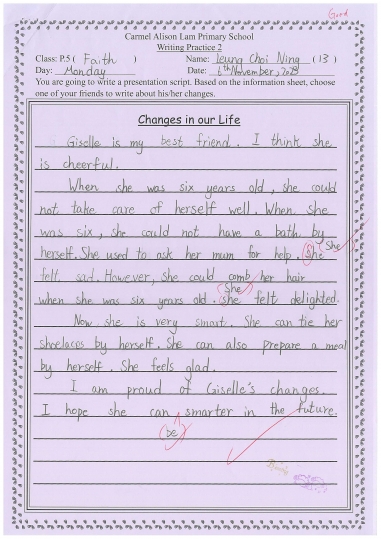 Good
Carmel Alison Lam Primary School
Writing Practice 2
Class: P.5 ( Faith ) Name: Leung Choi Ning ( 13 )
Day: Monday Date: 6th November, 2023
You are going to write a presentation script. Based on the information sheet, choose
one of your friends to write about his/her changes.
Changes in our Life
Giselle is my best friend. I think she
is cheerful.
When she was six years old, she could
not take care of herself well. When she
was six, she could not have a bath by
herself. She used to ask her mum for help. she
She
felt sad. However, she could comb her hair
She
when she was six years old. she felt delighted.
Now, she is very smart. She can tie her
shoelaces by herself. She can also prepare a meal
by herself. She feels glad.
I am proud of Giselle's changes.
I hope she can smarter in the future.
be